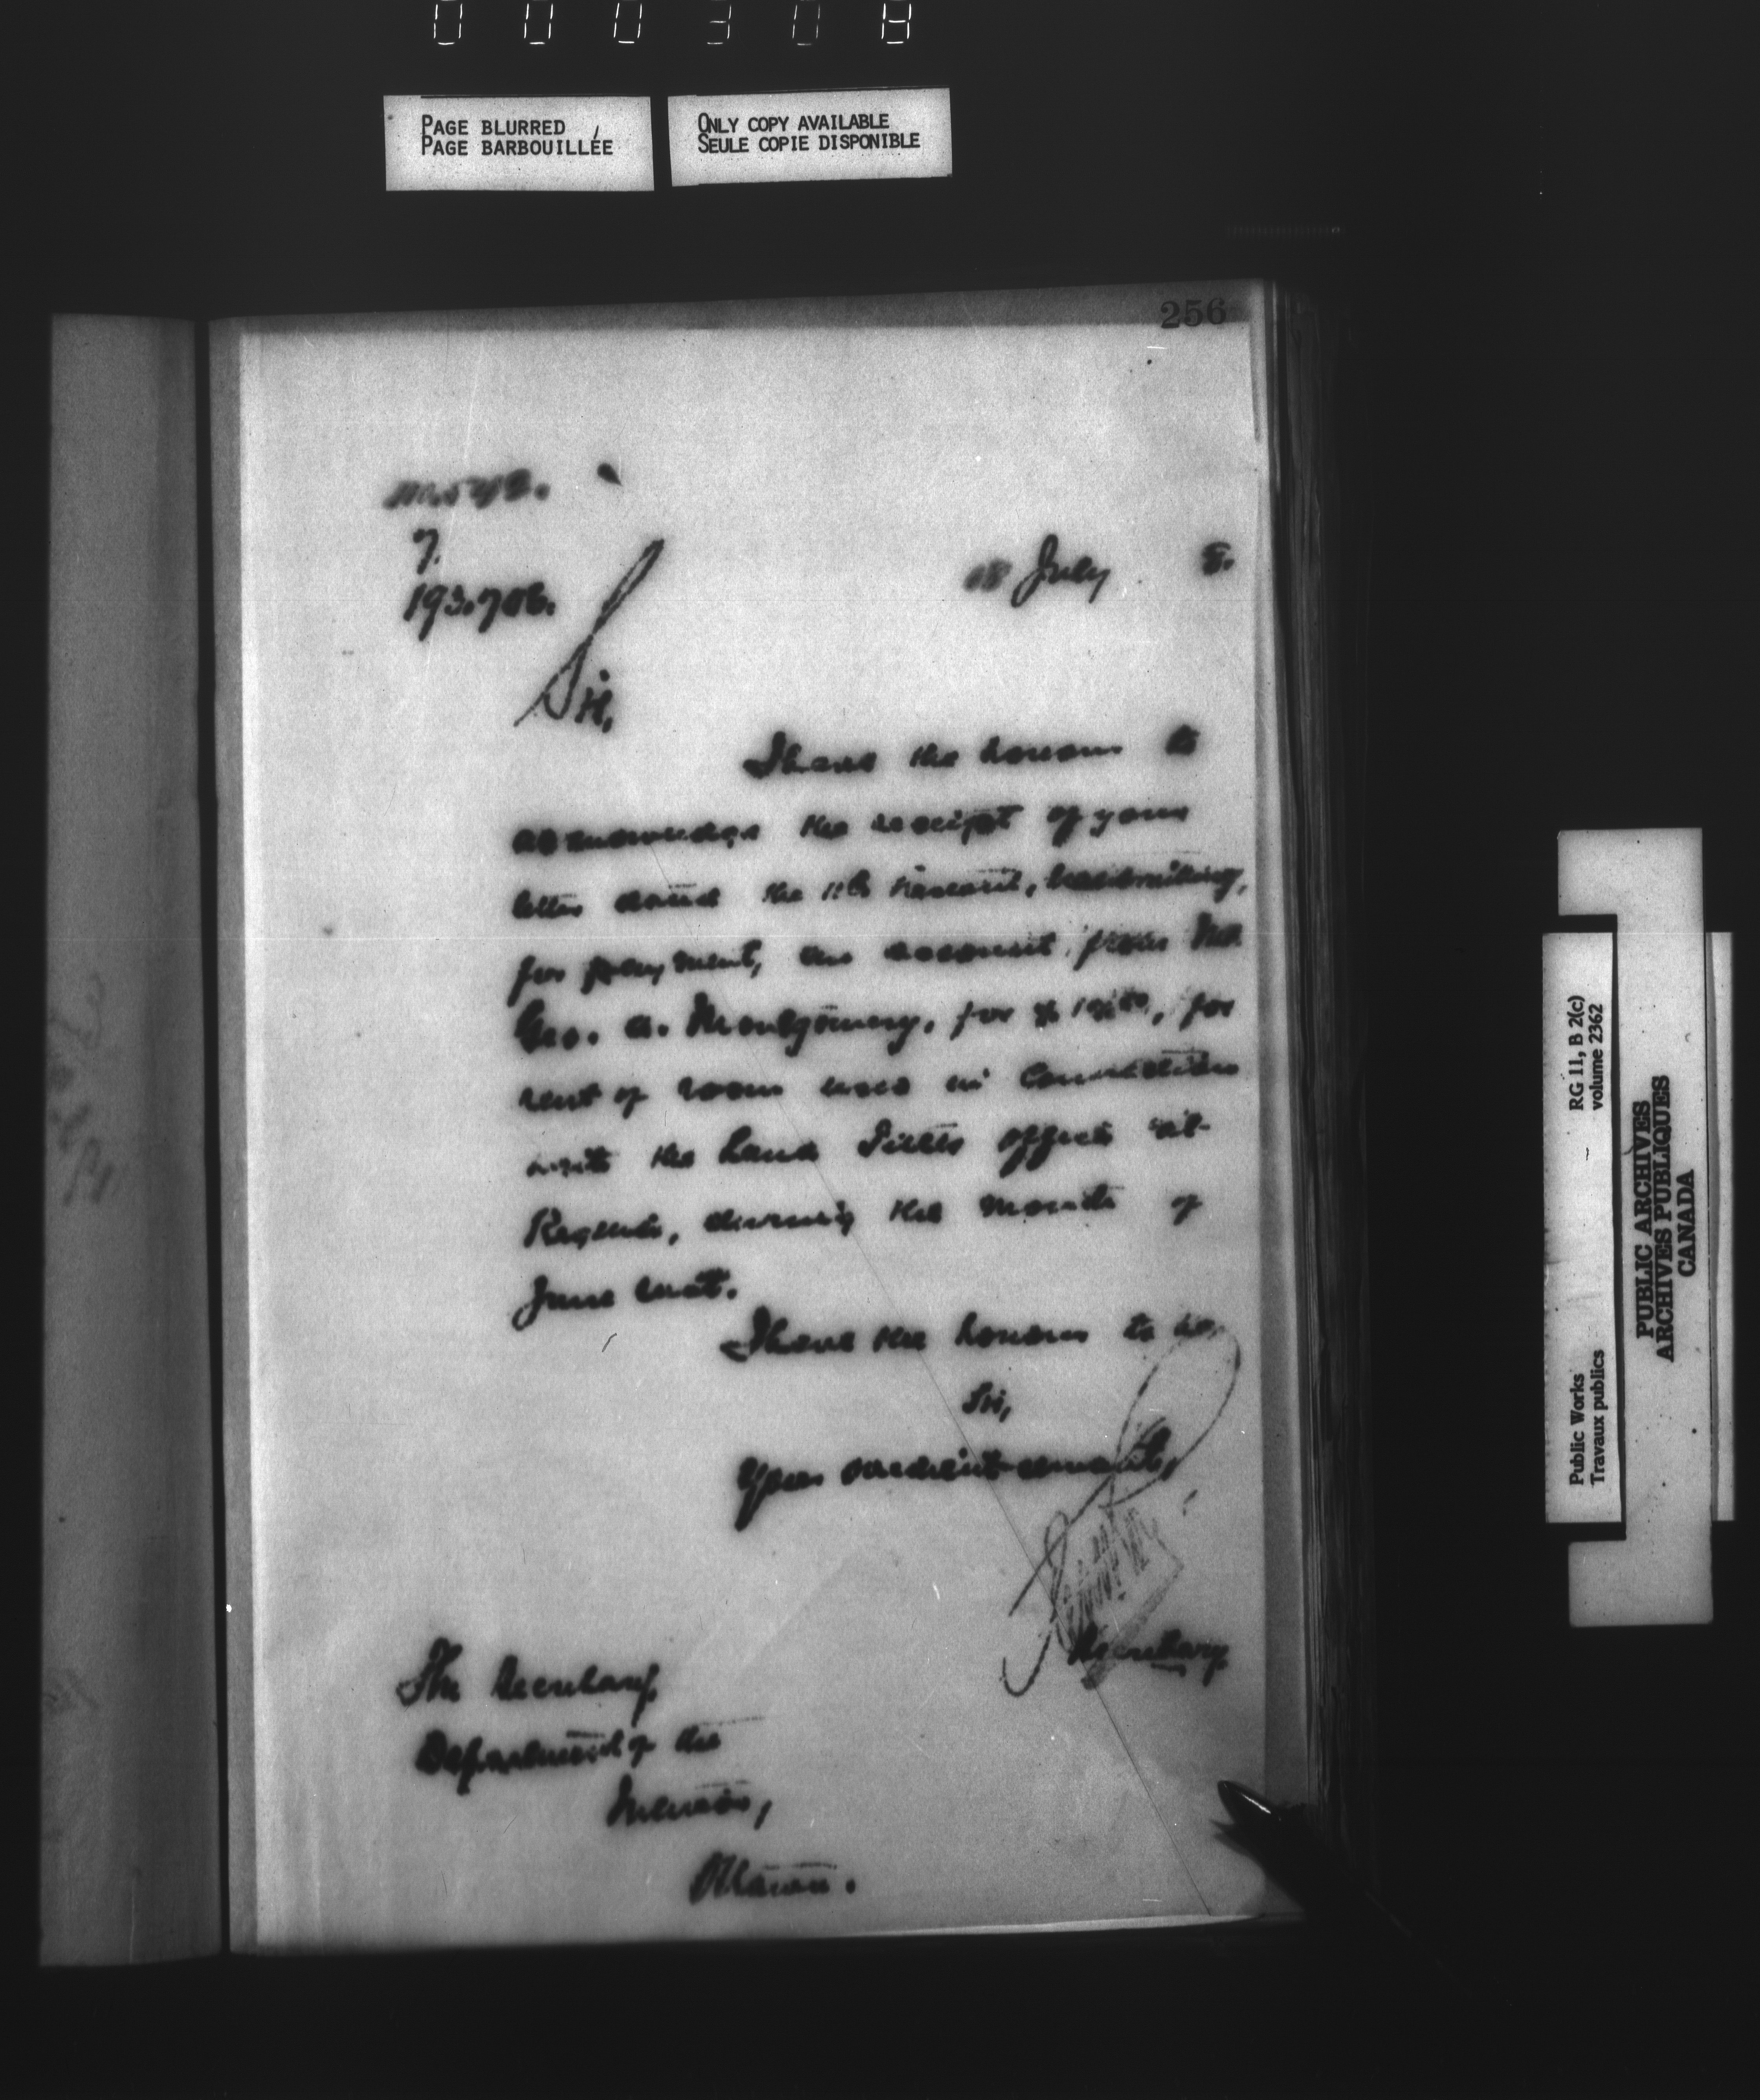 000308
PAGE BLURRED
PAGE BARBOUILLÉE
ONLY COPY AVAILABLE
SEULE COPIE DISPONIBLE
256
7.
18 July 8.
Sir,
I have the honour to
acknowledge the receipt of your
letter dated the 11th instant, transmitting,
for payment, an account from Mr.
Geo. A. Montgomery, for for
rent of room used in connection
with the Land Titles Office at
Regina, during the month of
June last.
I have the honour to be,
Sir,
Your obedient servant,
Secretary.
The Secretary,
Department of the
Interior,
Ottawa.
Public Works
Travaux publics
RG 11, B 2(c)
volume 2362
PUBLIC ARCHIVES
ARCHIVES PUBLIQUES
CANADA